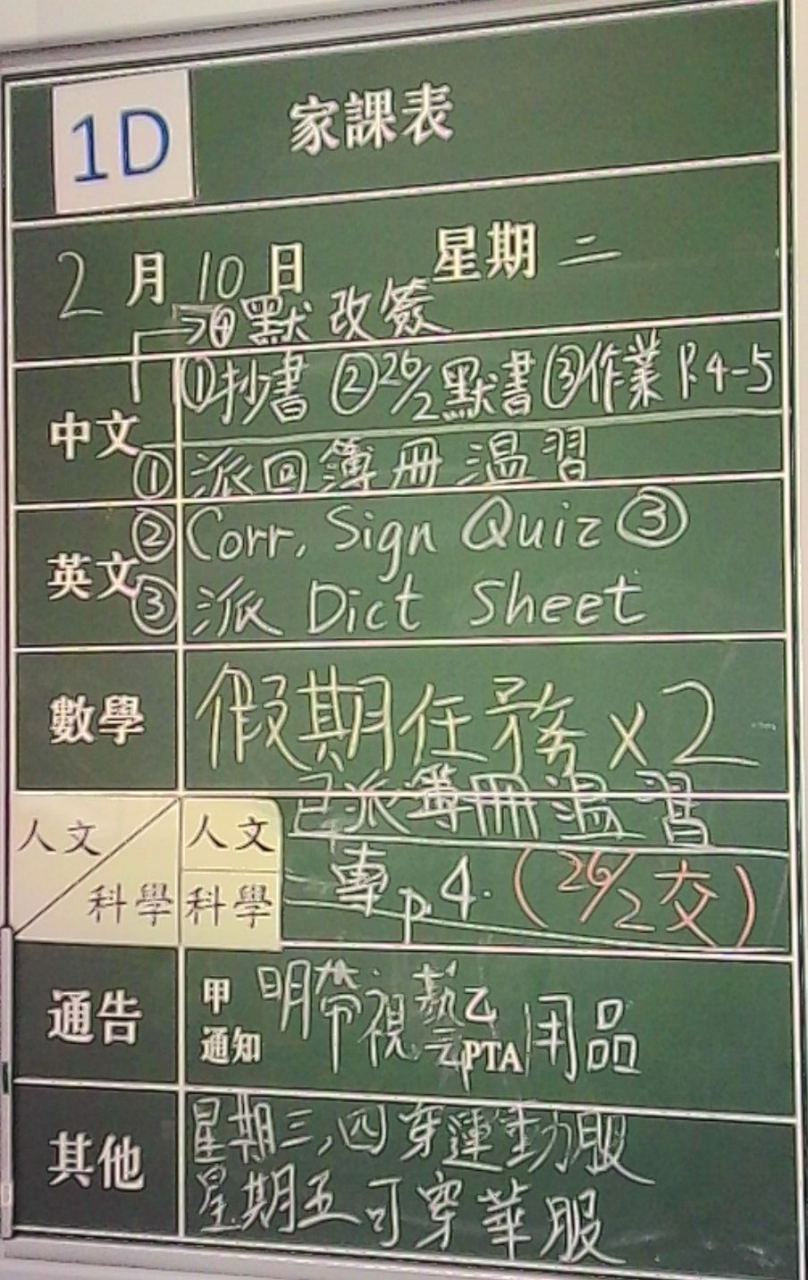 1D 家課表
2月10日 星期二
④默改簽
中文 ①抄書 ②26/2默書 ③作業P.4-5
①派回簿冊溫習
英文 ②Corr, Sign Quiz ③
③派 Dict Sheet
數學 假期任務 x2
人文 人文 已派簿冊溫習
科學 科學 專 p.4. (26/2交)
通告 甲 明帶視藝 乙 用品
通知 PTA
其他 星期三,四穿運動服
星期五可穿華服